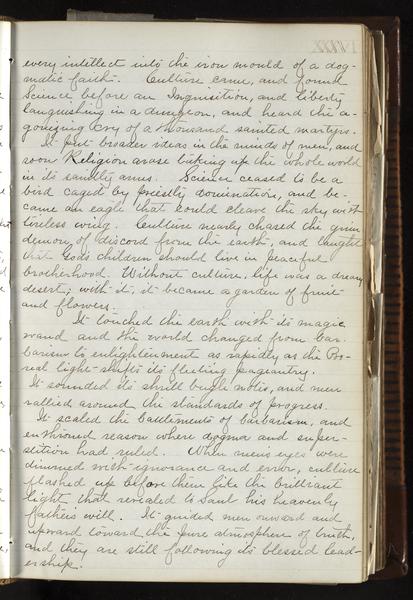 XXXVI
every intellect into the iron mould of a dog-
matic faith. Culture came, and found
Science before an Inquisition, and liberty
languishing in a dungeon, and heard the a-
gonizing cry of a thousand sainted martyrs.
It put broader ideas in the minds of men, and
soon Religion arose linking up the whole world
in its saintly arms. Science ceased to be a
bird caged by priestly domination, and be-
came an eagle that could cleave the sky with
tireless wing. Culture nearly chased the grim
demon of discord from the earth, and taught
that God's children should live in peaceful
brotherhood. Without culture, life was a dreary
desert; with it, it became a garden of fruit
and flowers.
It touched the earth with its magic
wand and the world changed from bar-
barism to enlightenment as rapidly as the Bo-
real light shifts its fleeting pageantry.
It sounded its shrill bugle notes, and men
rallied around the standards of progress.
It scaled the battlements of barbarism, and
enthroned reason where dogma and super-
stition had ruled. When men's eyes were
dimmed with ignorance and error, culture
flashed up before them like the brilliant
light that revealed to Saul his heavenly
father's will. It guided men onward and
upward toward the pure atmosphere of truth,
and they are still following its blessed lead-
ership.